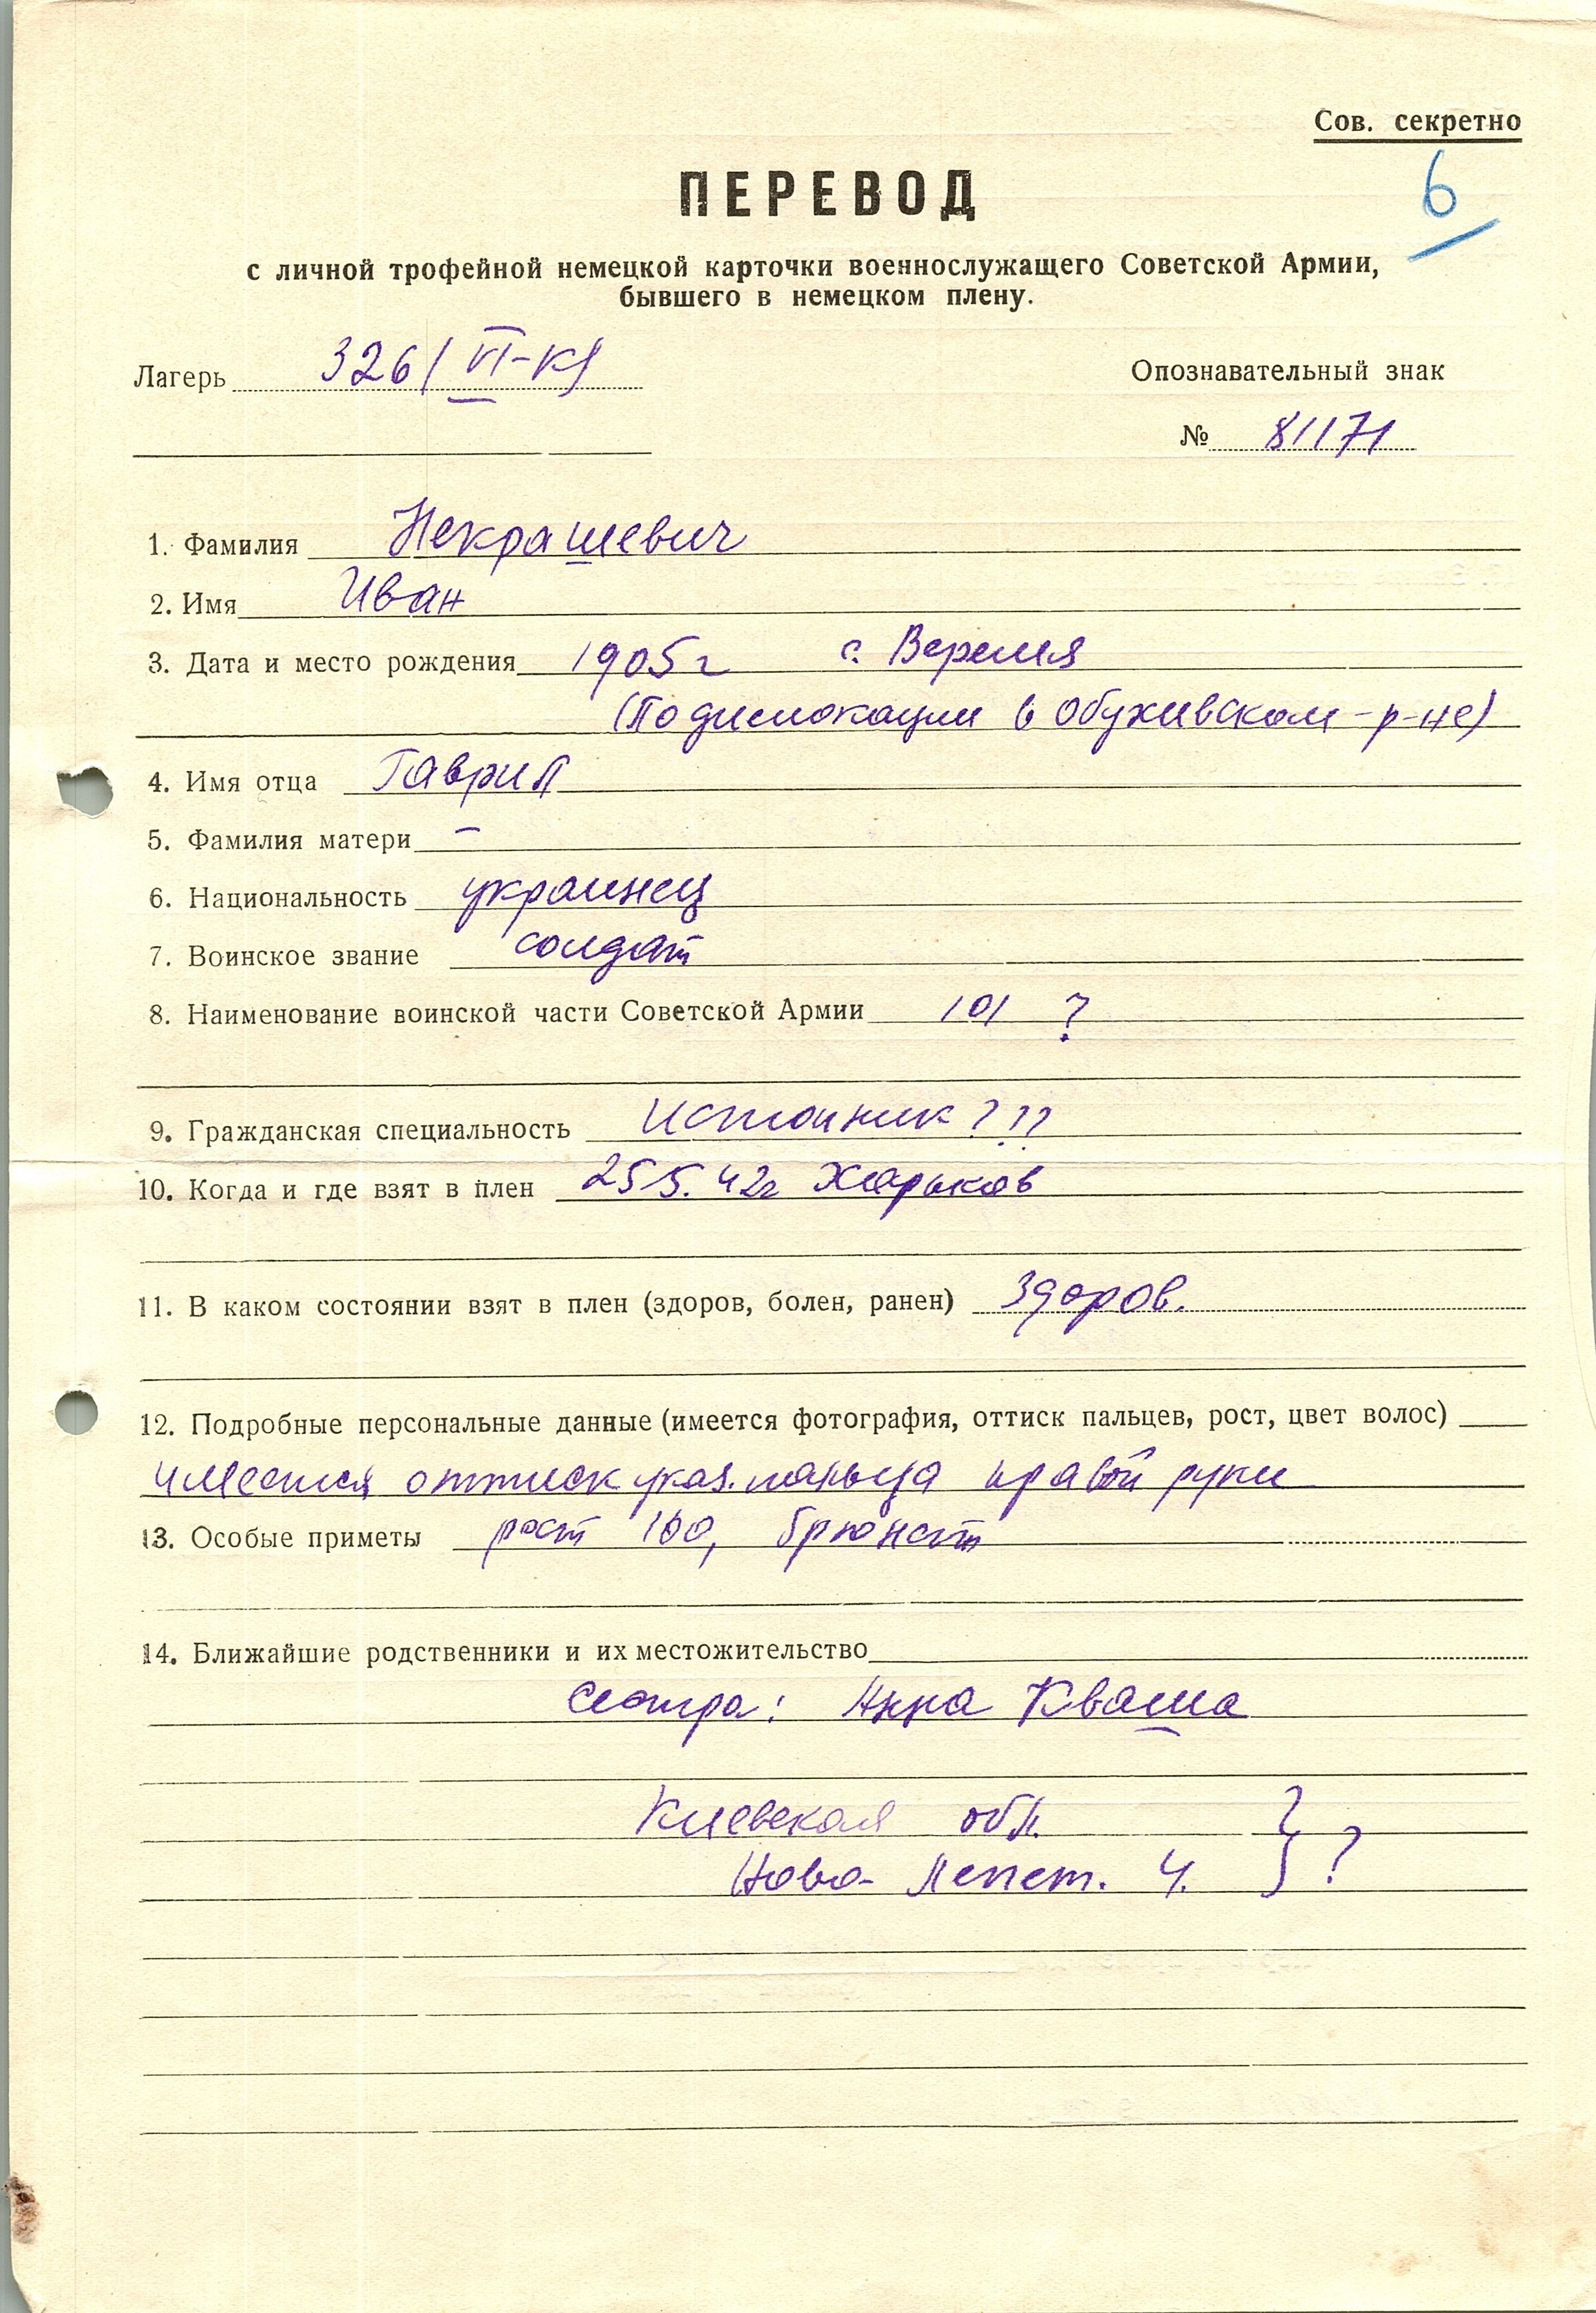 Сов. секретно
6
ПЕРЕВОД
с личной трофейной немецкой карточки военнослужащего Советской Армии,
бывшего в немецком плену.
Лагерь 326/VI-К/
Опознавательный знак
№ 81171
1. Фамилия Некрашевич
2. Имя Иван
3. Дата и место рождения 1905 г с. Веремя
(По дислокации в Обухивском-р-не)
4. Имя отца Гаврил
5. Фамилия матери –
6. Национальность украинец
7. Воинское звание солдат
8. Наименование воинской части Советской Армии 101 ?
9. Гражданская специальность Источник ???
10. Когда и где взят в плен 25 5. 42г Харьков
11. В каком состоянии взят в плен (здоров, болен, ранен) Здоров.
12. Подробные персональные данные (имеется фотография, оттиск пальцев, рост, цвет волос)
имеется оттиск указ. пальца правой руки
13. Особые приметы рост 160, брюнет
14. Ближайшие родственники и их местожительство
Сестра: Анна Кваша
Киевская обл.
Ново- Лепет. 4. } ?